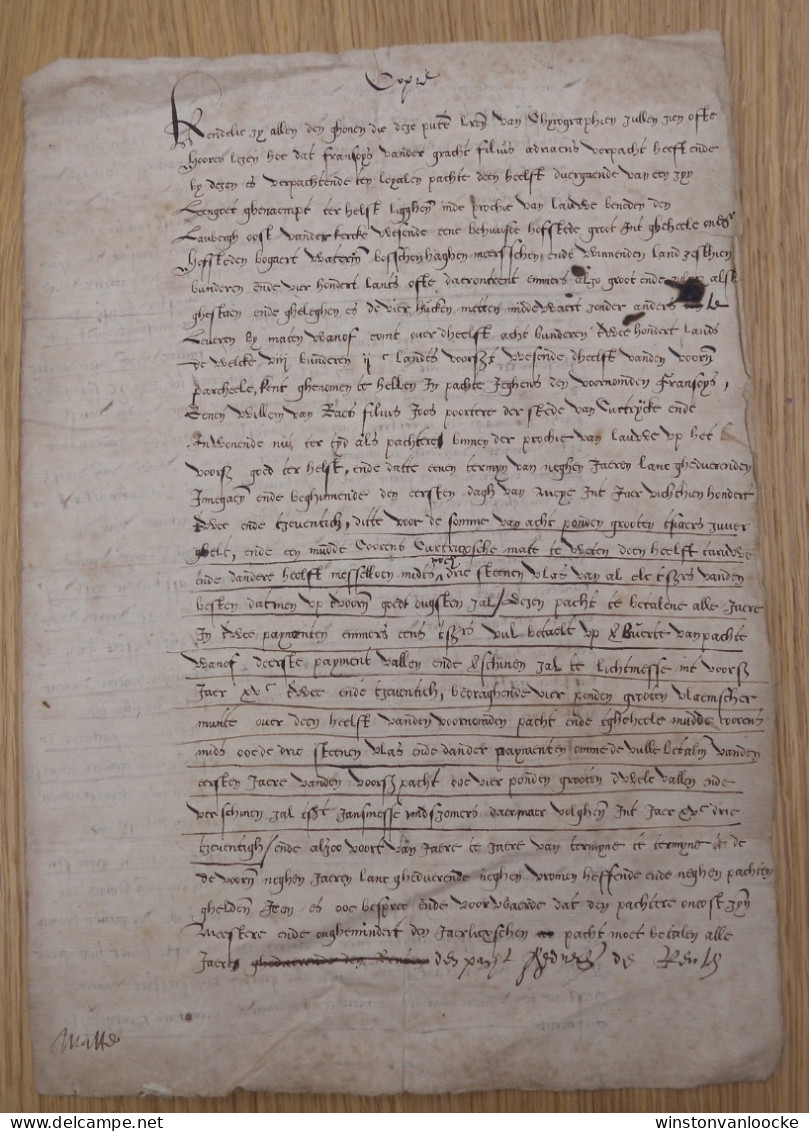 Copie
Kendelic zy allen den ghonen die deze von Chyrographien zullen zien ofte
hooren lezen hoe dat Fransoys vander gracht filius adriaens verpacht heeft ende
by dezen es verpachtende ten loyalen pachte deen heelft duergaende van een zyn
Leengoet ghenaempt ter helst ligghen inde prochie van Lauwe beneden den
Laubergh oost vander kercke wesende eene behuusde hofstede groot int gheheele
hofsteden bogaert waterin bosschen haghen meersschen ende winnenden land zesthien
bunderen ende vier hondert lants ofte daerontrent emmers alzo groot ende
ghestaen ende gheleghen es de vier hucken metten middewaert zonder anders te
Leveren by maten wanof comt over dheelft acht bunderen twee hondert lands
de welcke viij bunderen ij c landts voorsz wesende dheelft vanden voorn
parcheele, kent ghenomen te hebben in pachte jeghens den voornomden Fransoys,
Eenen Willem van Raes filius Joos poortere der stede van Curtrycke ende
Inwonende nu ter tyd als pachtere binnen der prochie van lauwe up het
voorsz goed ter helst, ende datte eenen termyn van neghen Jaeren lanc gheduerenden
Innegaen ende beghinnende den eersten dagh van meye Int Jaer vichthien hondert
twee ende tzeventich, ditte voor de somme van acht ponden grooten tsiaers zuver
ghelt, ende een mudde Coorens Curtrycxsche mate te weten deen heelft taruwe
ende dandere heelft messelloen mids noch drie steenen vlas van al elc tsiaers vanden
besten datmen up tvoorn goedt ougsten zal / wezen pacht te betalene alle Jaere
In twee paymenten emmers eens tsiaers vul betaelt up tvuerte van pachte
wanof deerste payment vallen ende verschinen zal te lichtmesse int voorsz
Jaer xv c twee ende tzeventich, bedraghende vier ponden grooten vlaemscher
munte over deen heelft vanden voornomden pacht ende tgheheele mudde coorens
mids ooc de drie steenen vlas ende dander paymenten omme de vulle betalin vanden
eersten Jaere vanden voorsz pacht ooc vier ponden grooten dwelc vallen ende
verschinen zal tsint Jansmesse midszomers daernaer volghen Int Jaer xv c drie
tzeventigh / ende alzoo voort van Jaere te Jaere van termyne te termyne de
de voorn neghen Jaeren lanc gheduerende neghen vromen heffende ende neghen pachten
gheldende Item es ooc besprec ende voorwaerde dat den pachtere oncost zyn
Meestere ende onghemindert den Jaerlicxschen pacht moet betalen alle
Jaere den pacht